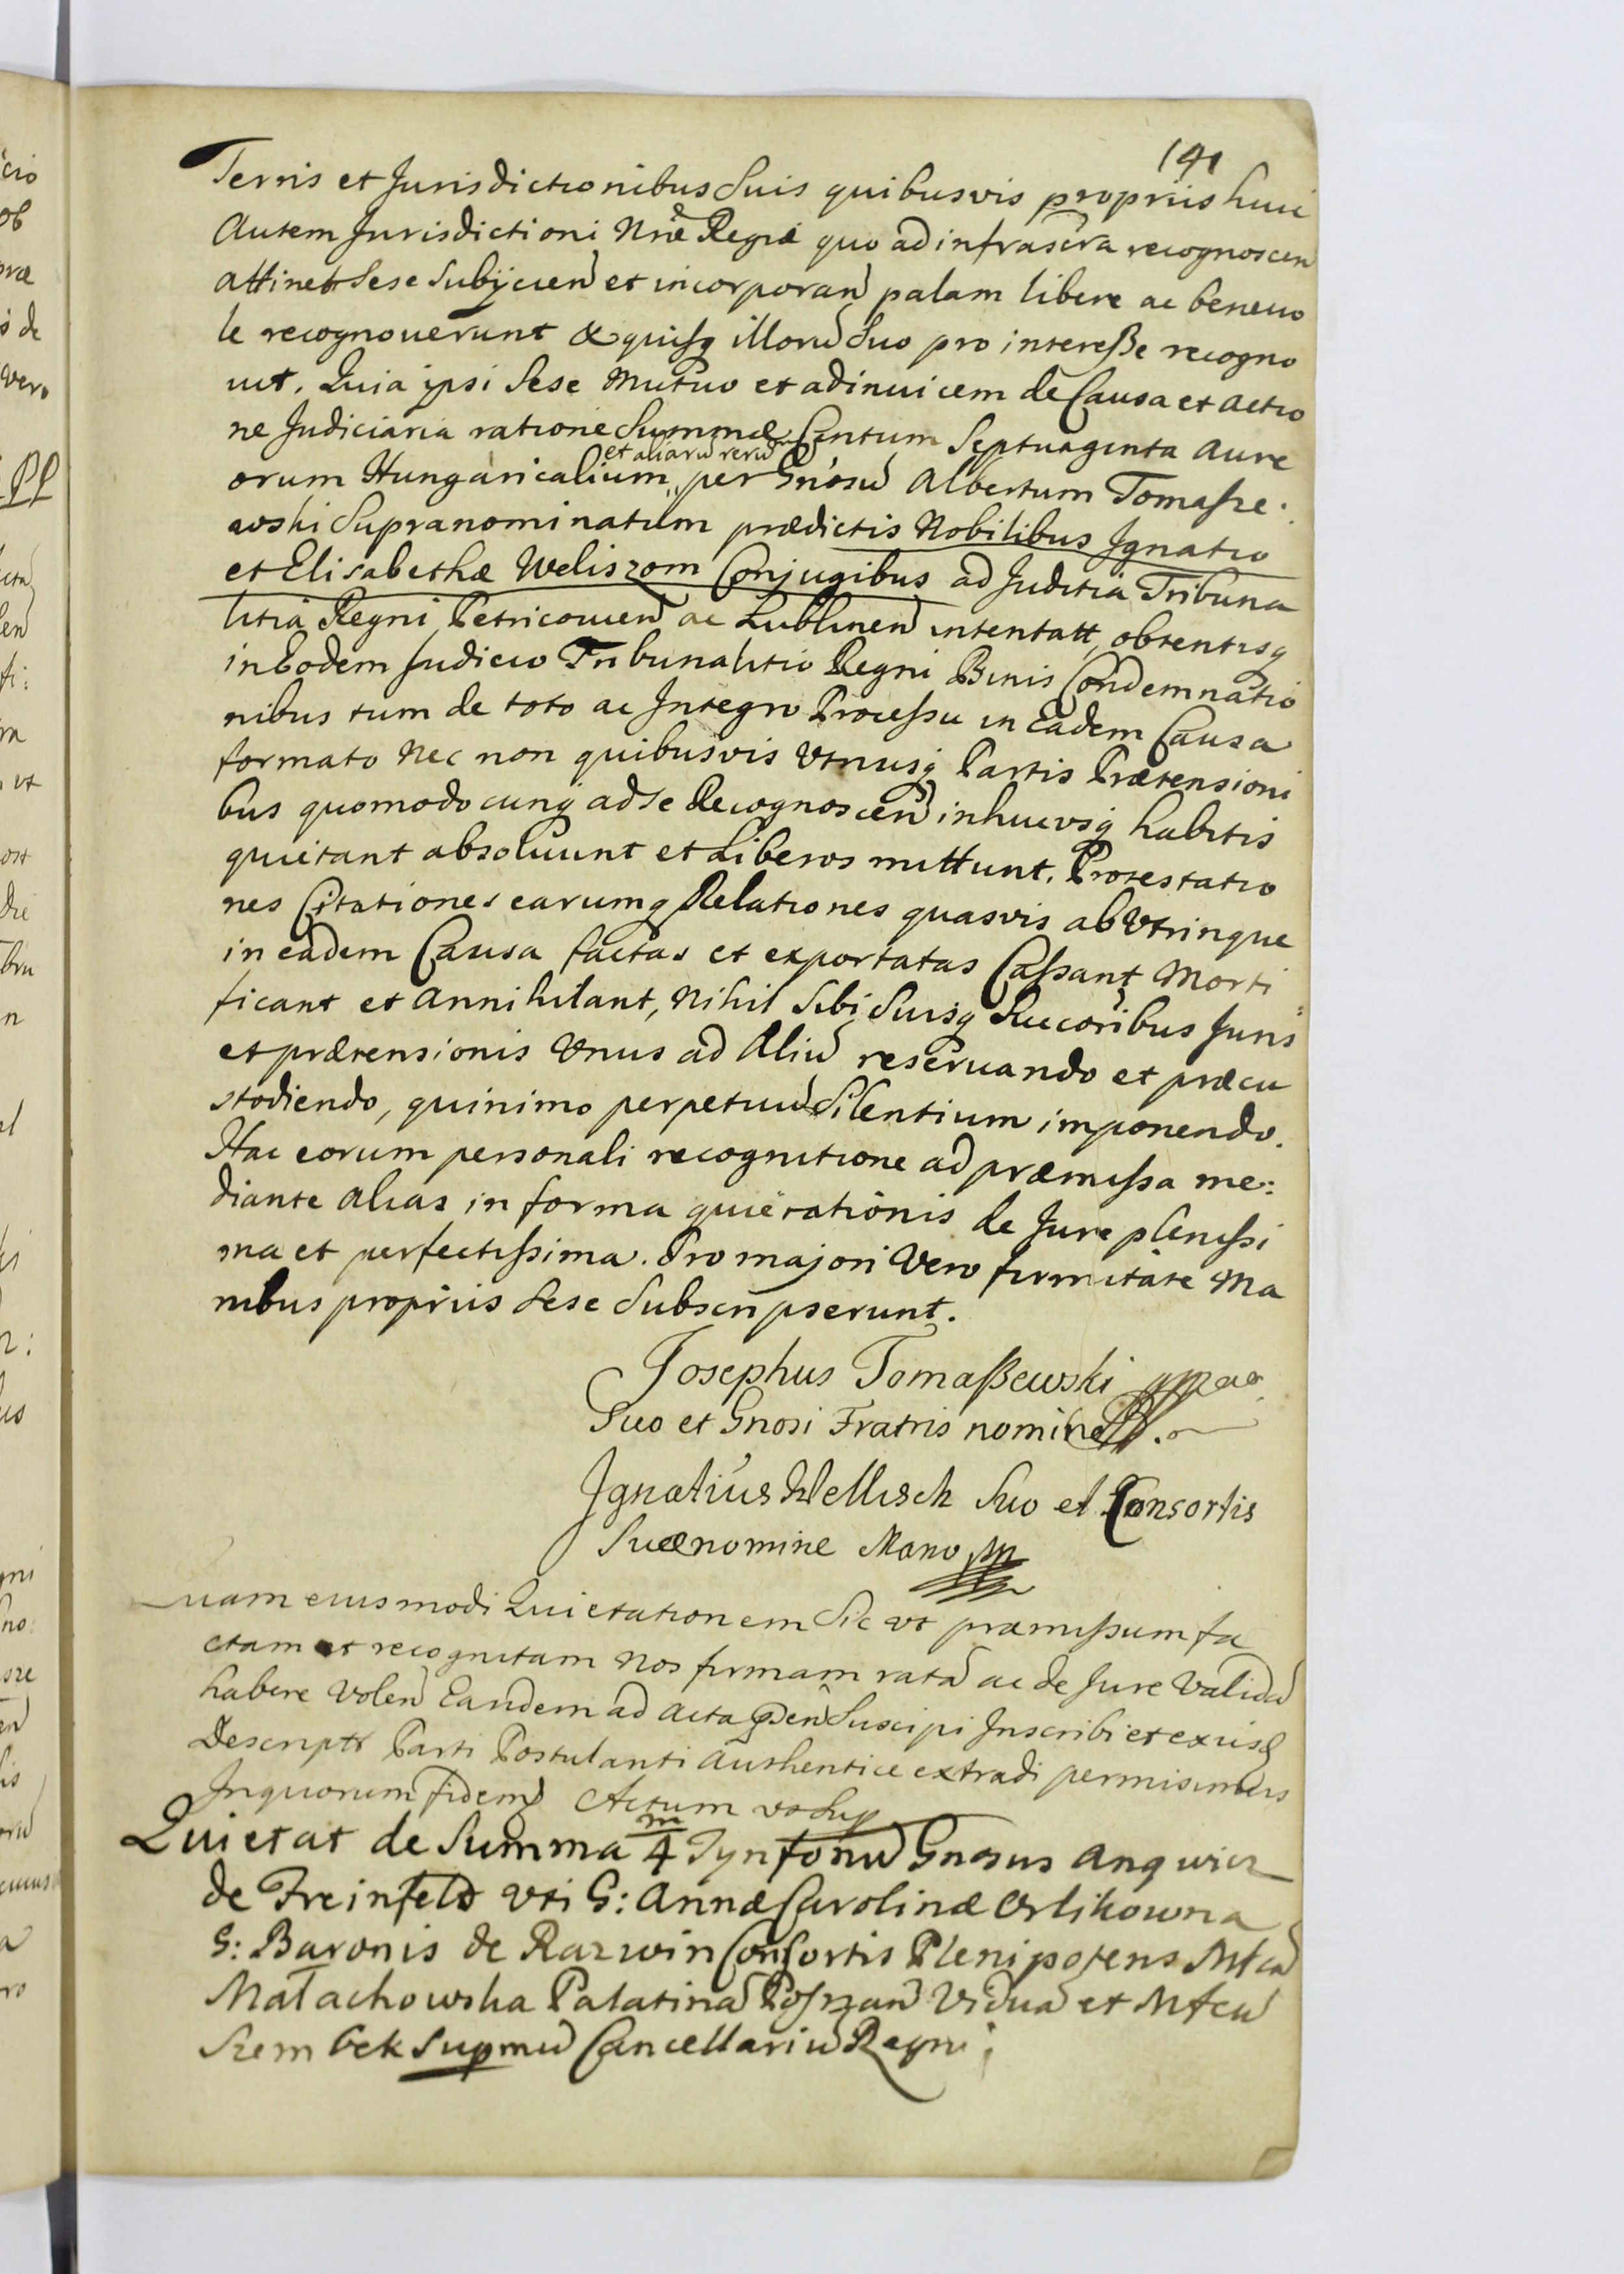 141
Terris et Jurisdictionibus Suis quibusvis propriis huic
Autem Jurisdictioni Nrae Regiae quo ad infrascra recognoscen
attinet Sese Subijcien et incorporan palam libere ac beneuo
le recognouerunt & quisq illoru Suo pro interesse recogno
uit. Quia ipsi Sese Mutuo et adinuicem de Causa et Actio
ne Judiciaria ratione Summae Centum Septuaginta Aure
et aliaru reru
orum Hungaricalium per Gnosu Albertum Tomasze.
wski Supranominatum praedictis Nobilibus Ignatio
et Elisabethae Weliszom Conjugibus ad Juditia Tribuna
litia Regni Petricouien ac Lublinen intentatt, obtentisq
in Eodem Judicio Tribunalitio Regni Binis Condemnatio
nibus tum de toto ac Integro Processu in Eadem Causa
formato Nec non quibusvis Vtriusq Partis Praetensioni
bus quomodocunq ad se Recognoscen inhucusq habitis
quietant absoluunt et Liberos mittunt. Protestatio
nes Citationes earumq Relationes quasvis ab Vtrinque
in eadem Causa factas et exportatas Cassant Morti
ficant et Annihilant, Nihil Sibi Suisq Succoribus Juris
et praetensionis Vnus ad Aliu reseruando et praecu
stodiendo, quinimo perpetuu Silentium imponendo.
Hac eorum personali recognitione ad praemissa me:
diante alias in forma quietationis de Jure plenissi
ma et perfectissima. Pro majori Vero firmitate Ma
nibus propriis Sese Subscripserunt.
Josephus Tomaszewski
Suo et Gnosi Fratris nomine
Ignatius Wellisch Suo et Consortis
Suae nomine Mano
Quam eiusmodi Quietationem Sic vt praemissum fa
ctam et recognitam Nos firmam rata ac de Jure Valida
habere Volen Eandem ad Acta pden Suscipi Inscribi et ex iisq
Descriptt Parti Postulanti Authentice extradi permisimus
In quorum fidem Actum vt Sup
Quietat de Summa 4 m Tynfonu Gnosus Angwicz
de Freinfeld vti G: Annae Carolinae Orlikowna
G: Baronis de Razwin Consortis Plenipotens Mfca
Małachowska Palatina Posznan Vidua et Mfcu
Szembek Supmu Cancellariu Regni.